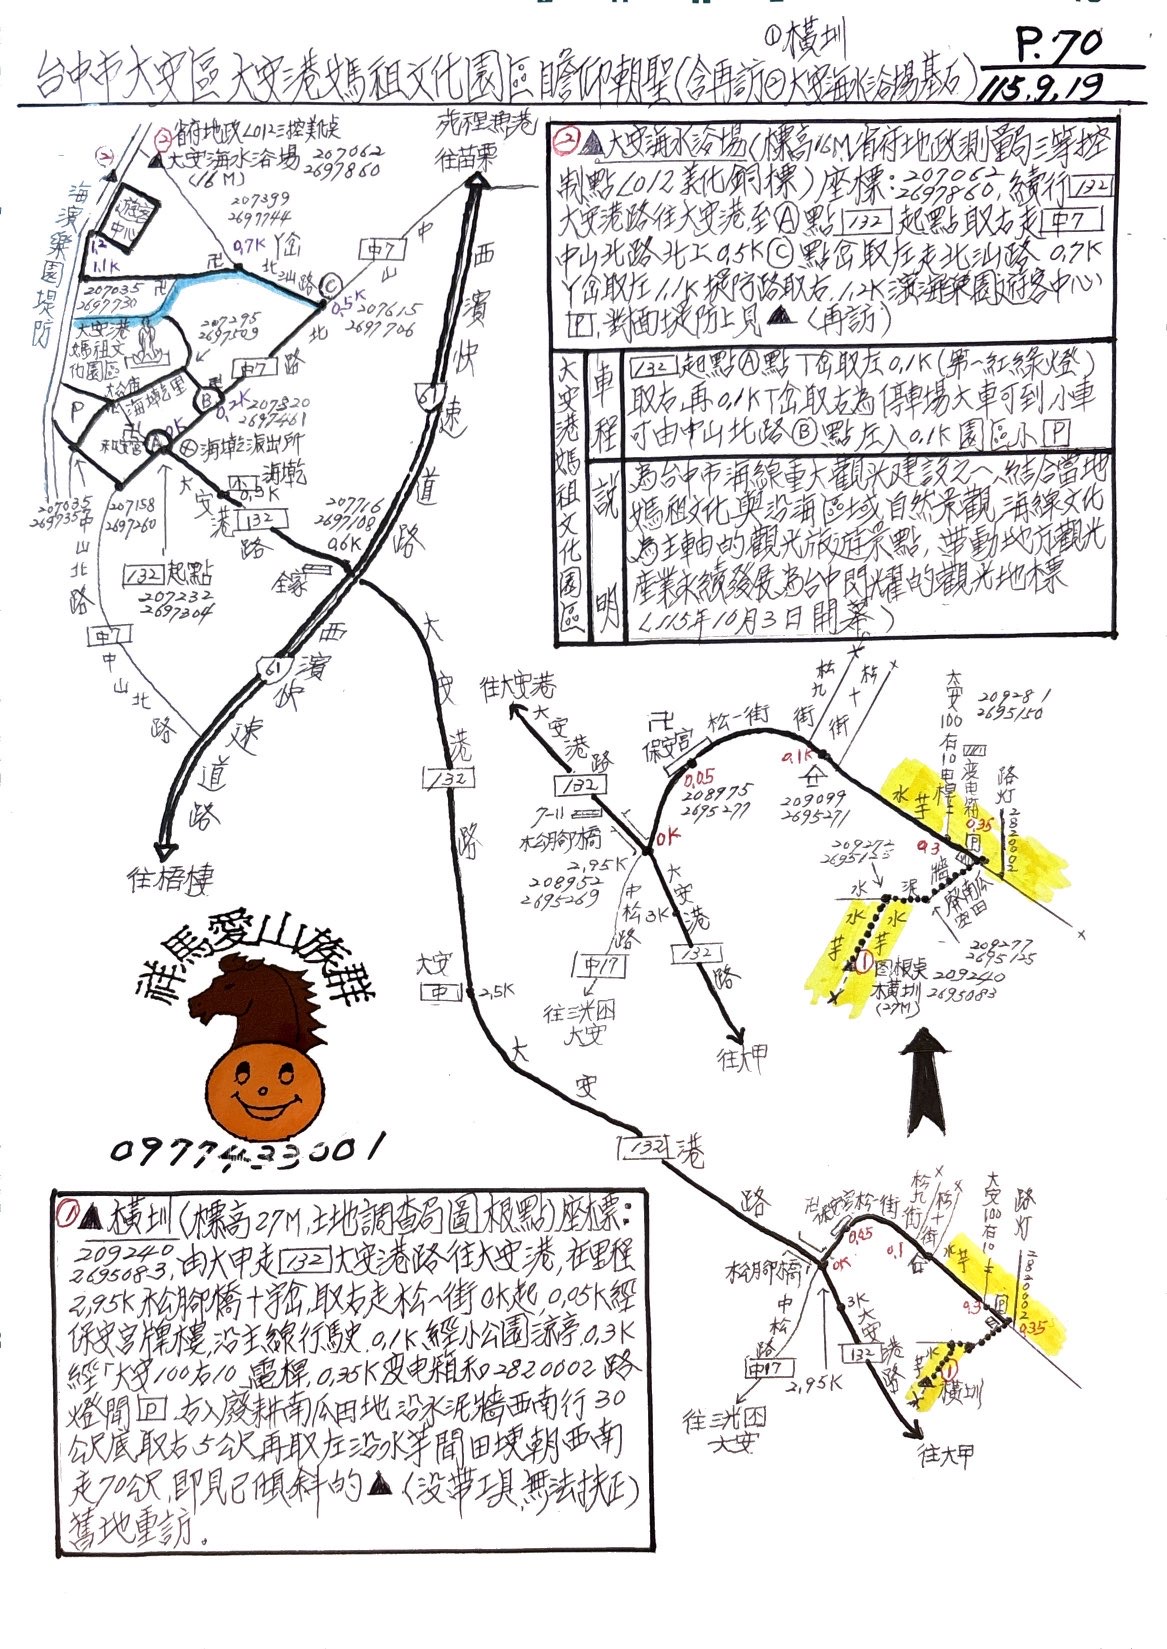 ①橫圳
P.70
台中市大安區大安港媽祖文化園區瞻仰朝聖(含再訪②大安海水浴場基石)
115.9.19
②省府地政L012三控美化點
▲大安海水浴場 207062 2697860
(16M)
207399
2697744
海濱樂園堤防
遊客中心
1.2
1.1K
0.7K
Y岔
北汕路
207035
2697730
往苗栗
中7
中山北路
C
0.5K
207615
2697706
大安港媽祖文化園區
207295
2697509
中7
B
0.2K 207320
2697461
P
和安宮
A
0K
海墘派出所
海墘
0.5K
大安港路
132
207035
2697357
207158
2697260
132起點
207232
2697304
中山北路
中7
中山北路
207716
2697108
0.6K
全家
西濱快速道路
61
西濱快速道路
61
往梧棲
大安港路
132
大安
中
2.5K
大安港路
132
②▲大安海水浴場(標高16M,省府地政測量局三等控
制點L012美化銅標)座標:207062 2697860,續行132
大安港路往大安港至A點132起點取右走中7
中山北路北上0.5KC點岔取左走北汕路0.7K
Y岔取左1.1K堤防路取右,1.2K濱海樂園遊客中心
P,對面堤防上見▲(再訪)
大安港媽祖文化園區
車程
132起點A點T岔取左0.1K(第一紅綠燈)
取右,再0.1KT岔取右為停車場大車可到,小車
可由中山北路B點左入0.1K園區小P
說明
為台中市海線重大觀光建設之一,結合當地
媽祖文化與沿海區域自然景觀,海線文化
為主軸的觀光旅遊景點,帶動地方觀光
產業永續發展為台中閃耀的觀光地標
(115年10月3日開幕)
往大安港
大安港路
132
7-11
松腳橋
2.95K
208952
2695269
中松路
中17
往三光田
大安
保安宮
松一街
0K
0.05
208975
2695277
0.1K
209099
2695271
松九街
松十街
大安100右10电桿
変电箱
209281
2695150
路灯2820002
0.35
0.3
水芋
209272
2695125
水泥牆
廢南瓜空田
209277
2695125
水芋
水芋
①图根點
橫圳
(27M)
209240
2695083
3K
大安港路
132
往大甲
祥馬愛山族群
0977433001
①▲橫圳(標高27M,土地調查局圖根點)座標:
209240 2695083,由大甲走132大安港路往大安港,在里程
2.95K松腳橋十字岔,取右走松一街0K起,0.05K經
保安宮牌樓,沿主線行駛,0.1K經小公園涼亭,0.3K
經「大安100右10」電桿,0.35K变电箱和2820002路
燈間P,右入廢耕南瓜田地沿水泥牆西南行30
公尺底取右5公尺再取左沿水芋間田埂朝西南
走70公尺,即見已傾斜的▲(沒帶工具,無法扶正)
舊地重訪。
保安宮
松一街
松九街
松十街
大安100右10
路灯2820002
0.05
0.1
0.3
0.35
水芋
松腳橋
0K
3K
中松路
中17
2.95K
往三光田
大安
大安港路
132
水芋
①橫圳
往大甲